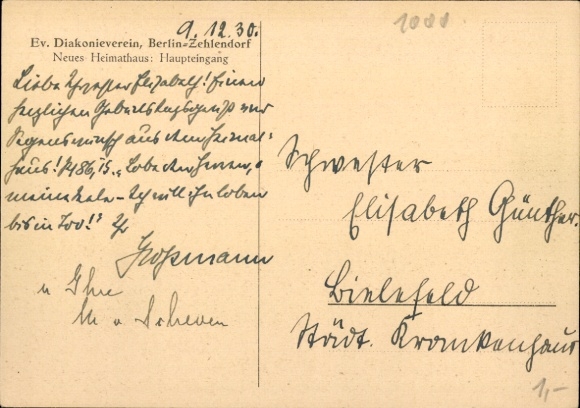 9.12.30.
Ev. Diakonieverein, Berlin-Zehlendorf
Neues Heimathaus: Haupteingang
Liebe Schwester Elisabeth! Einen
herzlichen Geburtstagsgruß und
Segenswunsch aus dem Heimat-
haus! „Lobe den Herren,
meine Seele - Ich will ihn loben
bis in Tod!“ Ihr
u Ihre
M v Scheven
Schwester
Elisabeth Günther.
Bielefeld
Städt. Krankenhaus
1,-